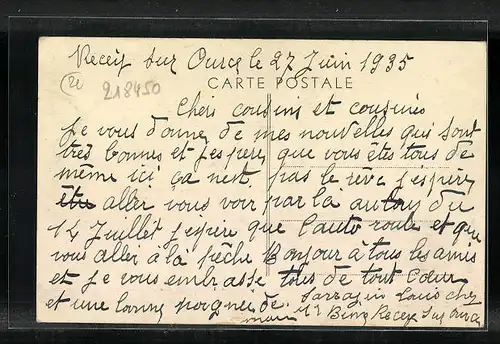 Recey sur Ource le 27 Juin 1935
CARTE POSTALE
218450
Chers cousins et cousines
Je vous donne de mes nouvelles qui sont
très bonnes et j'espère que vous êtes tous de
même ici ça nest pas le rêve j'espère
être aller vous voir par la autour du
14 Juillet j'espère que l'auto roule et que
vous aller à la pêche Bonjour à tous les amis
et je vous embrasse tous de tout Cœur
et une bonne poignée de Sarrazin Louis chez
main Mr Bing Recey sur Ource